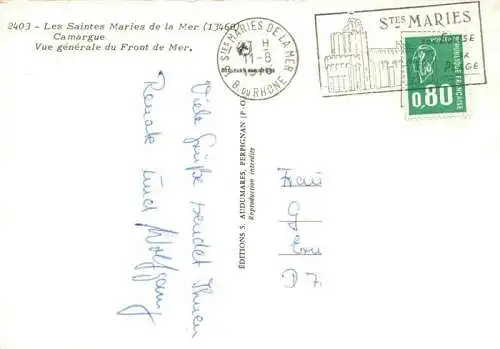 2403 - Les Saintes Maries de la Mer (13460)
Camargue
Vue générale du Front de Mer.
STES MARIES DE LA MER
H
11-8
B. DU RHONE
STES MARIES
0,80
REPUBLIQUE FRANÇAISE
ÉDITIONS S. AUDUMARES, PERPIGNAN (P.-O.)
Reproduction interdite
Viele Grüße sendet Ihnen
Renate und Wolfgang
Frau
D 7